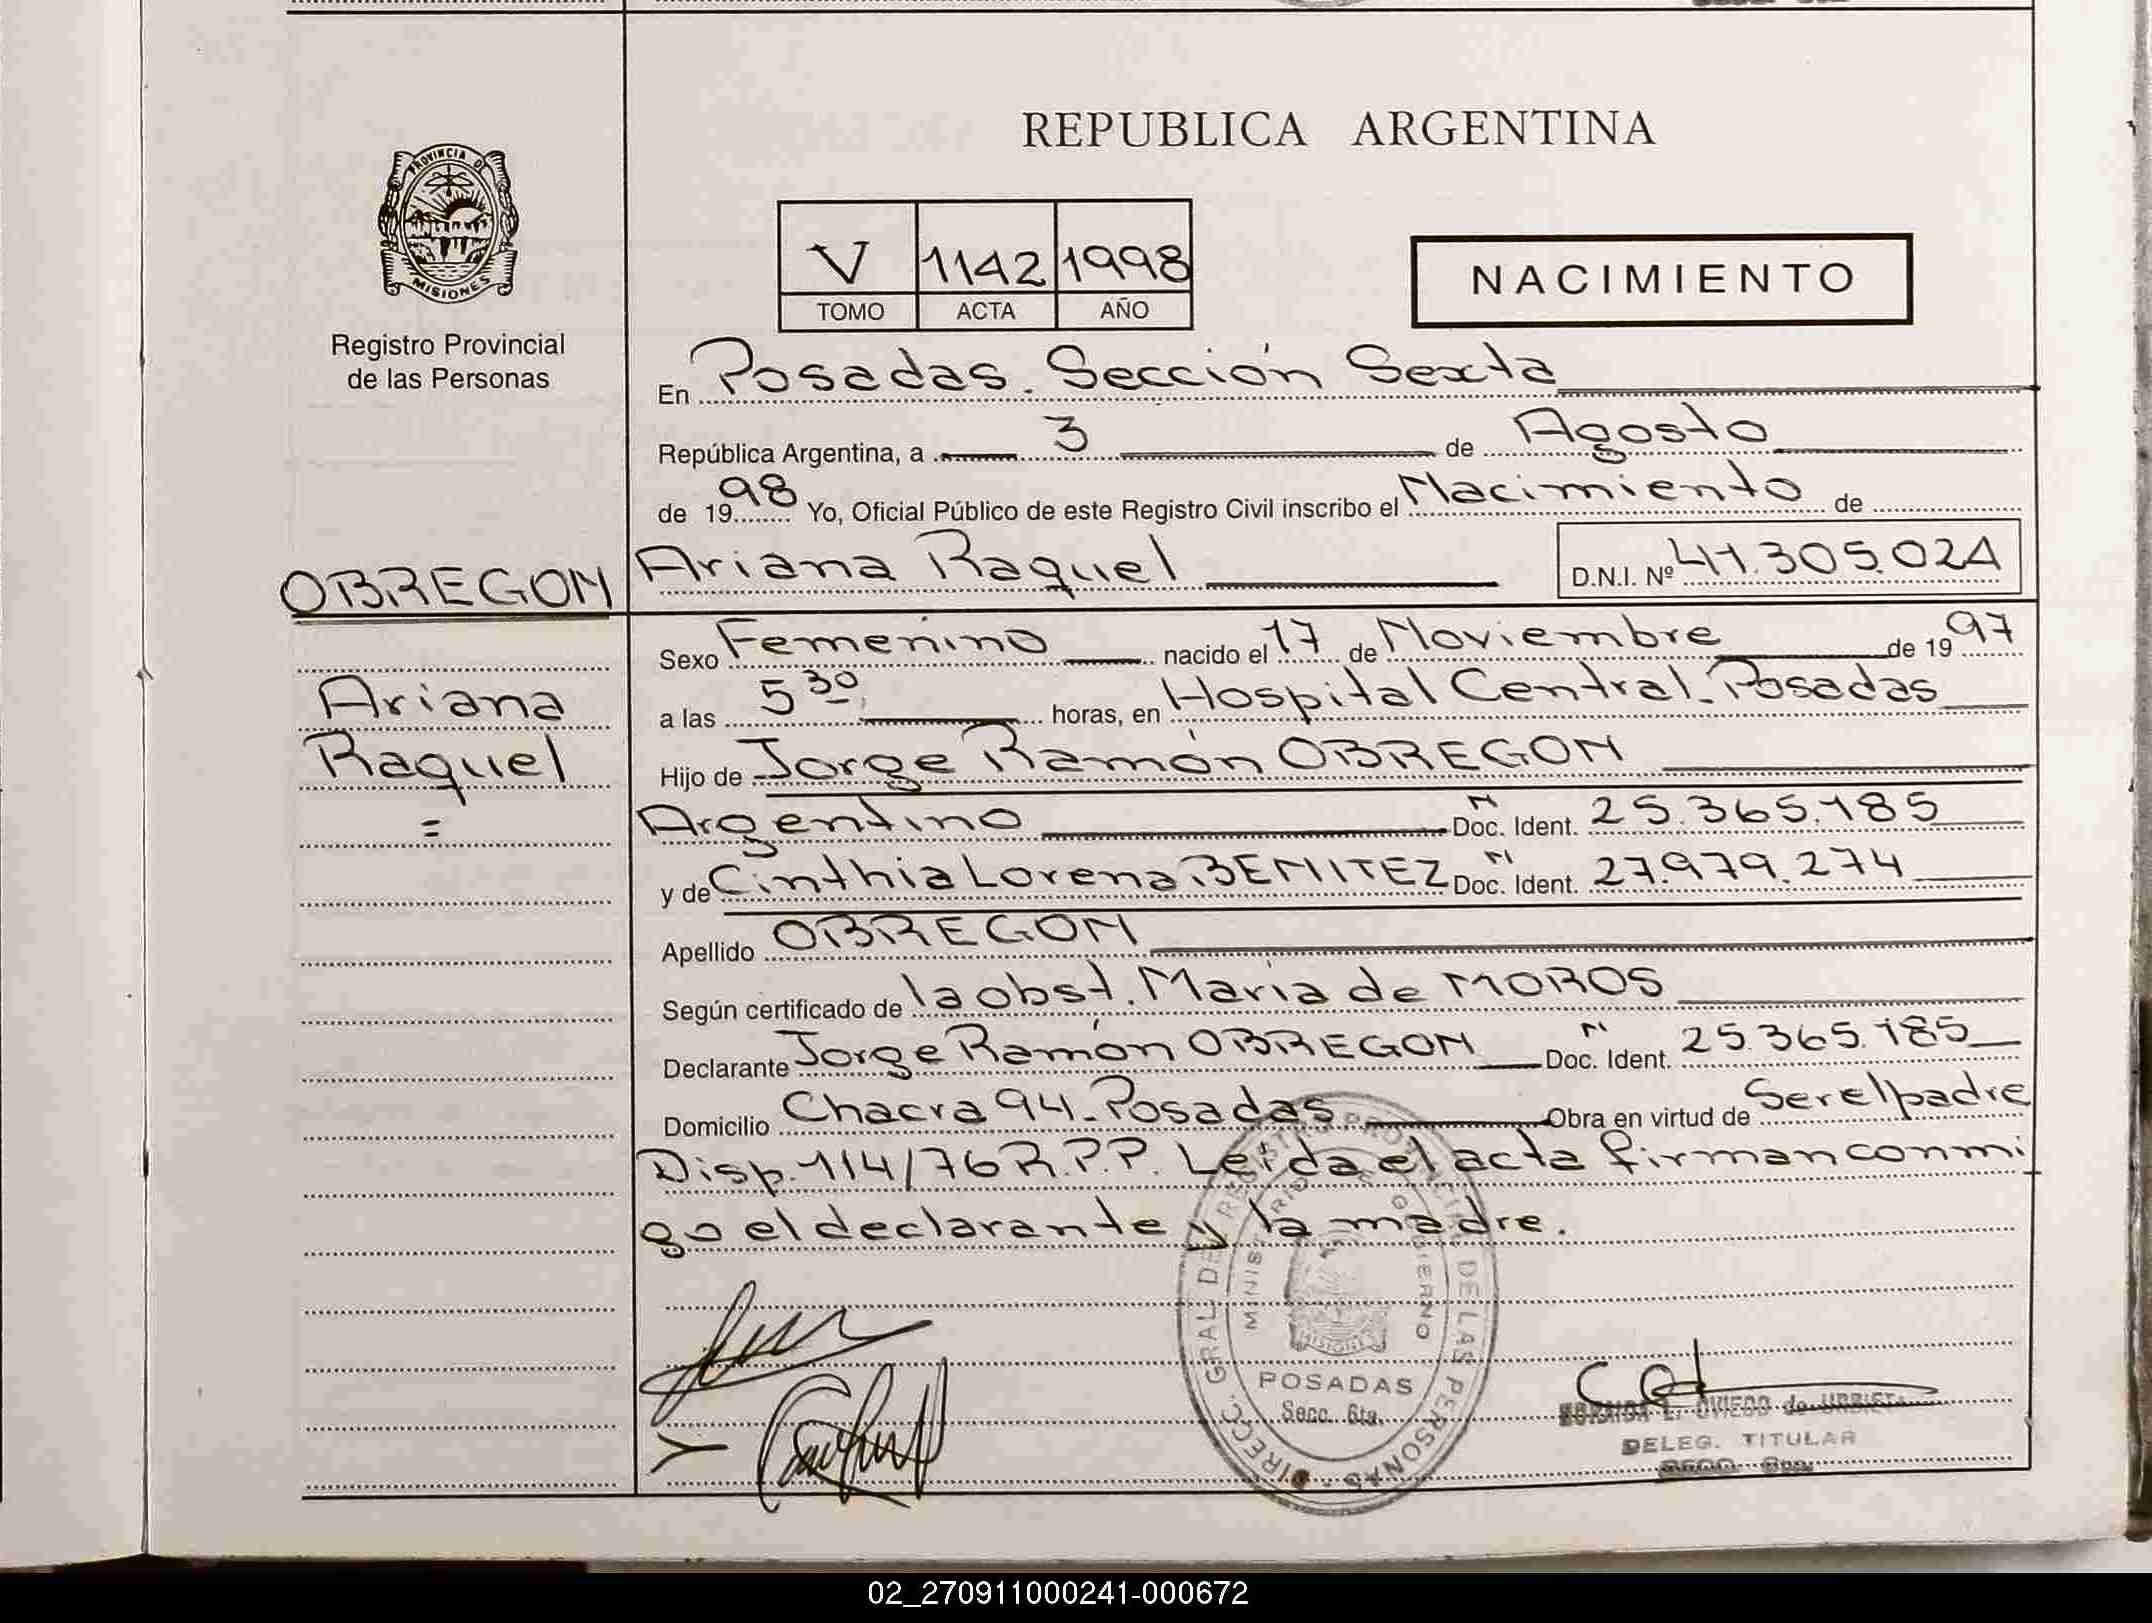 REPUBLICA ARGENTINA
PROVINCIA DE
MISIONES
Registro Provincial
de las Personas
V 1142 1998
TOMO ACTA AÑO
NACIMIENTO
En Posadas. Sección Sexta
República Argentina, a 3 de Agosto
de 1998 Yo, Oficial Público de este Registro Civil inscribo el Nacimiento de
Ariana Raquel D.N.I. Nº 41.305.024
OBREGON
Ariana
Raquel
=
Sexo Femenino nacido el 17 de Noviembre de 1997
a las 5 30 horas, en Hospital Central. Posadas
Hijo de Jorge Ramón OBREGON
Argentino Doc. Ident. N 25.365.185
y de Cinthia Lorena BENITEZ Doc. Ident. N 27.979.274
Apellido OBREGON
Según certificado de la obst. María de MOROS
Declarante Jorge Ramón OBREGON Doc. Ident. N 25.365.185
Domicilio Chacra 94 - Posadas Obra en virtud de Ser el padre
Disp. 114/76 R.P.P. Leída el acta firman conmi
go el declarante y la madre.
DIRECC. GRAL DE REGISTRO PROVINCIAL DE LAS PERSONAS
MINISTERIO DE GOBIERNO
MISIONES
POSADAS
Secc. 6ta.
L. OVIEDO de URBIETA
DELEG. TITULAR
02_270911000241-000672